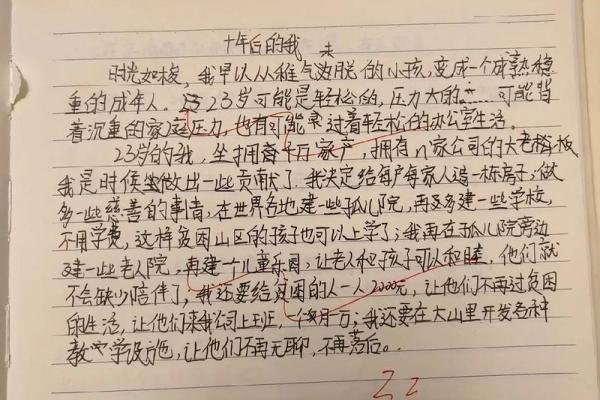 十年后的我
去
时光如梭，我早以从稚气泼脱的小孩，变成一个成熟稳
重的成年人。23岁可能是轻松的，压力大的……可能背
着沉重的家庭压力，也有可能过着轻松的办公室生活。
23岁的我，坐拥着千万家产，拥有n家公司的大老板，
我是时候做出一些贡献了，我决定给每户每家人造一栋房子，做
多一些慈善的事情，在世界各地建一些孤儿院，再多建一些学校，
不用学费，这样贫困山区的孩子也可以上学了；我再在孤儿院旁边
建一些老人院，再建一个儿童乐园，让老人和孩子可以和睦，他们就
不会缺少陪伴了，我还要给贫困的人一人2000元，让他们不再过贫困
的生活，让他们来我公司上班，一个月一万；我还要在大山里开发各种
教学设施，让他们不再无聊，不再落后。